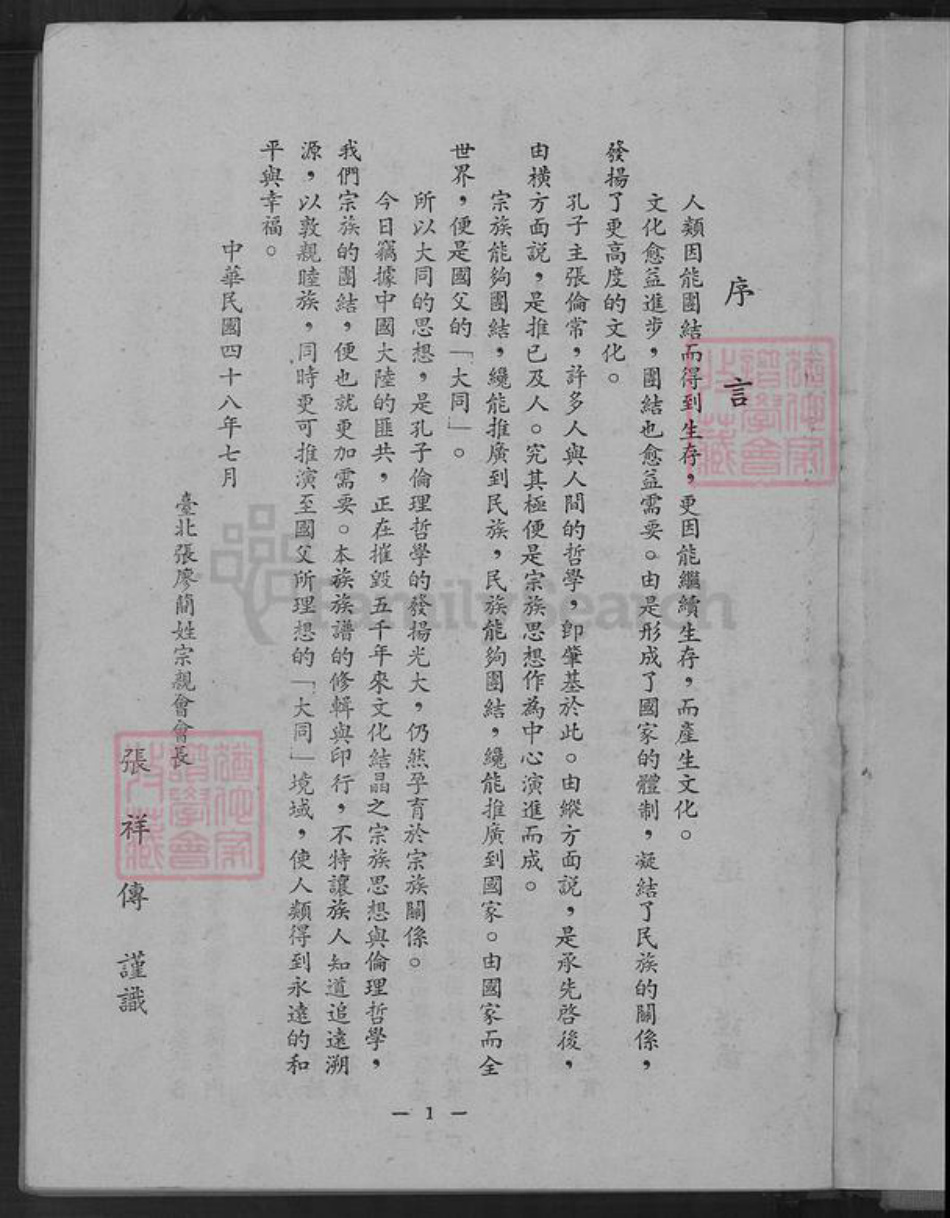 序言
人類因能團結而得到生存，更因能繼續生存，而產生文化。
文化愈益進步，團結也愈益需要。由是形成了國家的體制，凝結了民族的關係，
發揚了更高度的文化。
孔子主張倫常，許多人與人間的哲學，卽肇基於此。由縱方面説，是承先啓後，
由橫方面説，是推已及人。究其極便是宗族思想作為中心演進而成。
宗族能夠團結，纔能推廣到民族，民族能夠團結，纔能推廣到國家。由國家而全
世界，便是國父的「大同」。
所以大同的思想，是孔子倫理哲學的發揚光大，仍然孕育於宗族關係。
今日竊據中國大陸的匪共，正在摧毀五千年來文化結晶之宗族思想與倫理哲學，
我們宗族的團結，便也就更加需要。本族族譜的修輯與印行，不特讓族人知道追遠溯
源，以敦親睦族，同時更可推演至國父所理想的「大同」境域，使人類得到永遠的和
平與幸福。
中華民國四十八年七月
臺北張廖簡姓宗親會會長
張祥傳 謹識
— 1 —
FamilySearch